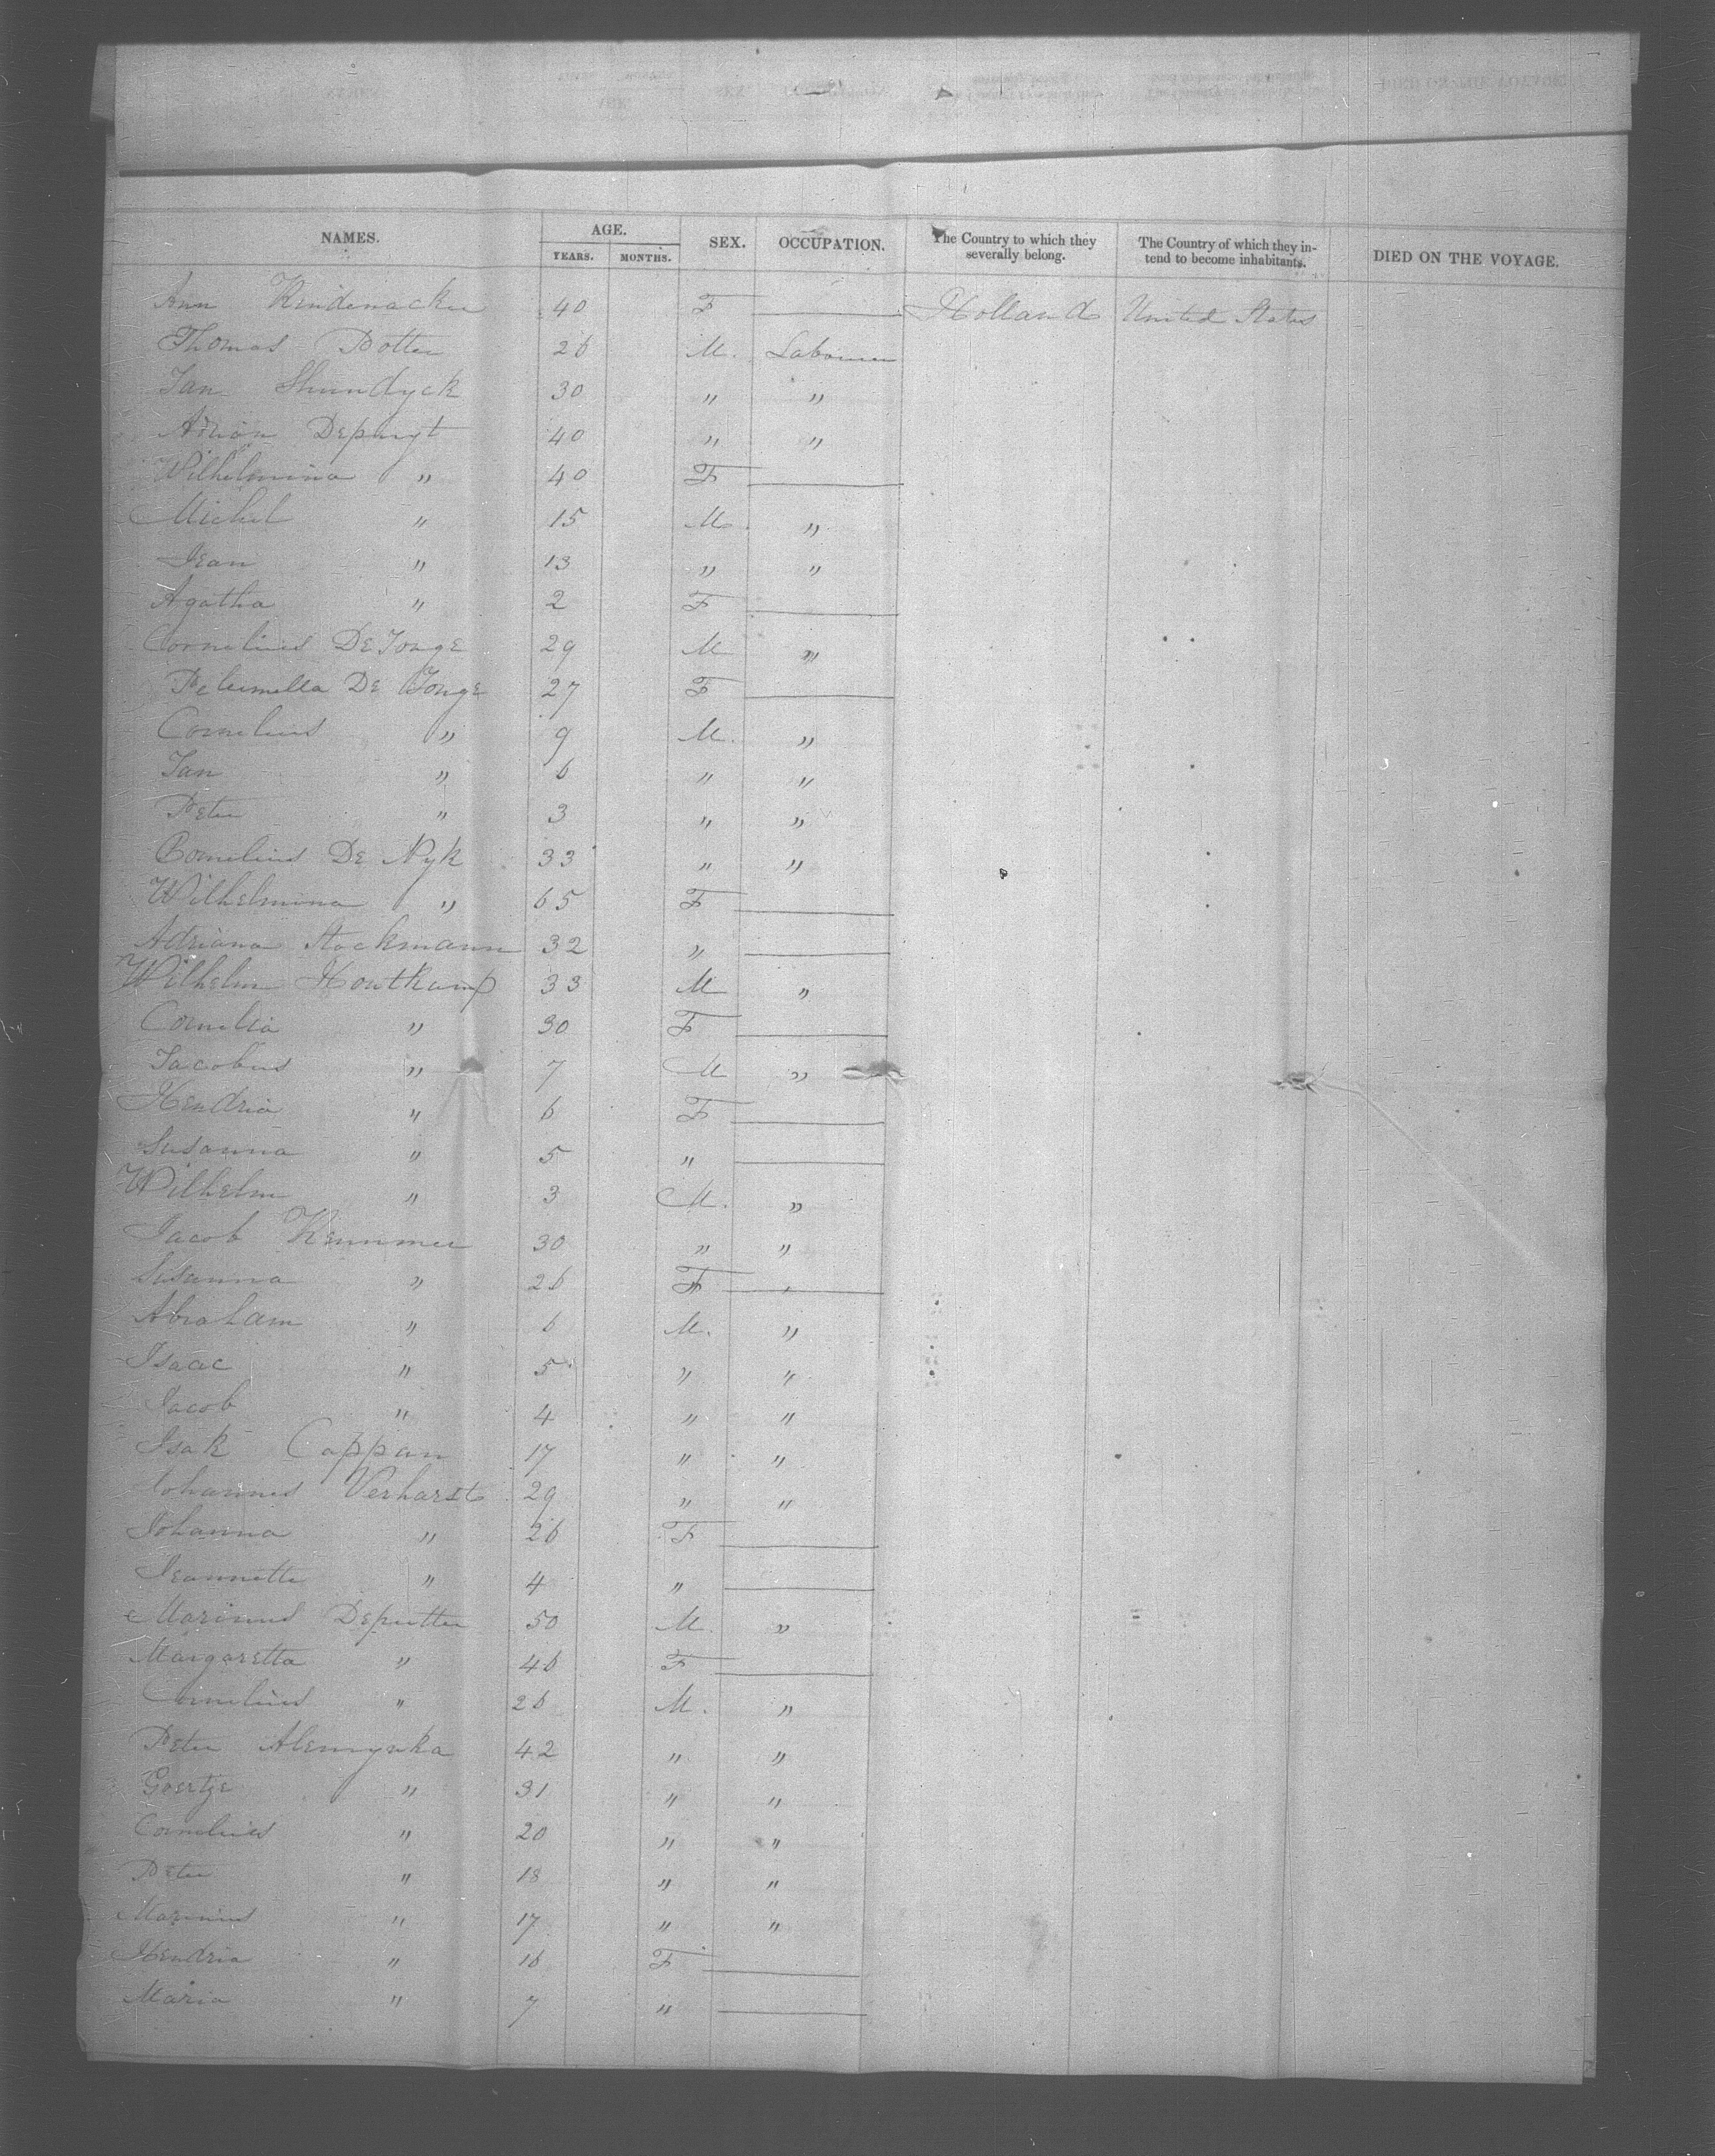 NAMES. AGE. YEARS. MONTHS. SEX. OCCUPATION. The Country to which they severally belong. The Country of which they intend to become inhabitants. DIED ON THE VOYAGE.
Ann 40 F Holland United States
Thomas Potter 26 M. Labourer
Jan 30 " "
Adrian Depuyt 40 " "
Wilhelmina " 40 F
Michel " 15 M "
Jean " 13 " "
Agatha " 2 F
Cornelius De Jonge 29 M "
De Jonge 27 F
Cornelius " 9 M. "
Jan " 6 " "
Peter " 3 " "
Cornelius De Nyk 33 " "
Wilhelmina " 65 F
Adriana Stockmann 32 "
Wilhelm Houtkamp 33 M "
Cornelia " 30 F
Jacobus " 7 M "
Hendria " 6 F
Susanna " 5 "
Wilhelm " 3 M. "
Jacob 30 " "
Susanna " 26 F "
Abraham " 6 M. "
Isaac " 5 " "
Jacob " 4 " "
Isak Cappan 17 " "
Johannes Verharst 29 " "
Johanna " 26 F
Jeannette " 4 "
Marinus Deputter 50 M. "
Margaretta " 46 F
Cornelius " 26 M. "
Peter 42 " "
Goertze " 31 " "
Cornelius " 20 " "
Peter " 18 " "
Marinus " 17 " "
Hendria " 16 F
Maria " 7 "